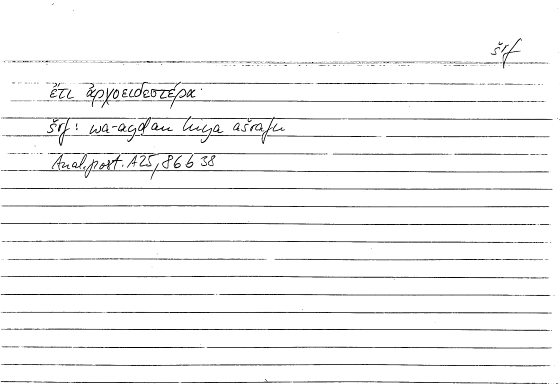 šrf
ἔτι ἀρχοειδεστέρα·
šrf: wa-ayḍan hiya ašrafu
Anal. post. A25, 86 b 38